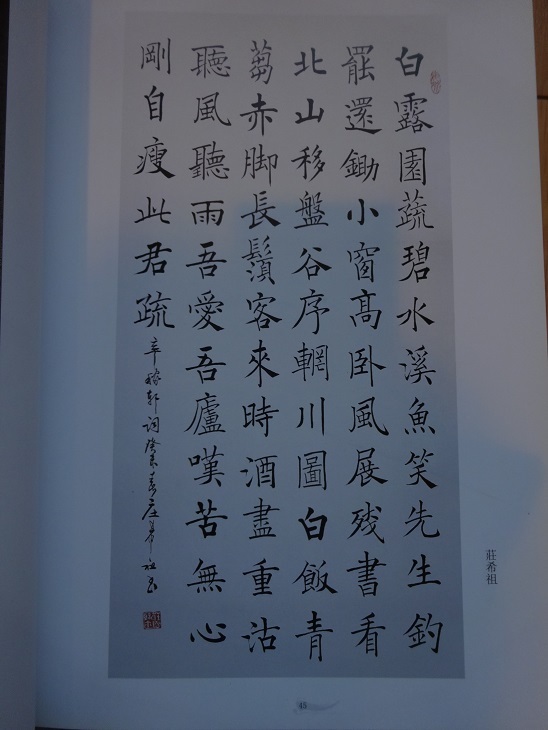 白露園蔬碧水溪魚笑先生釣
罷還鋤小窗髙卧風展残書看
北山移盤谷序輞川圖白飯青
蒭赤脚長鬚客來時酒盡重沽
聽風聽雨吾愛吾廬嘆苦無心
剛自瘦此君疏
辛稼軒詞癸未春莊希祖書
莊希祖
48